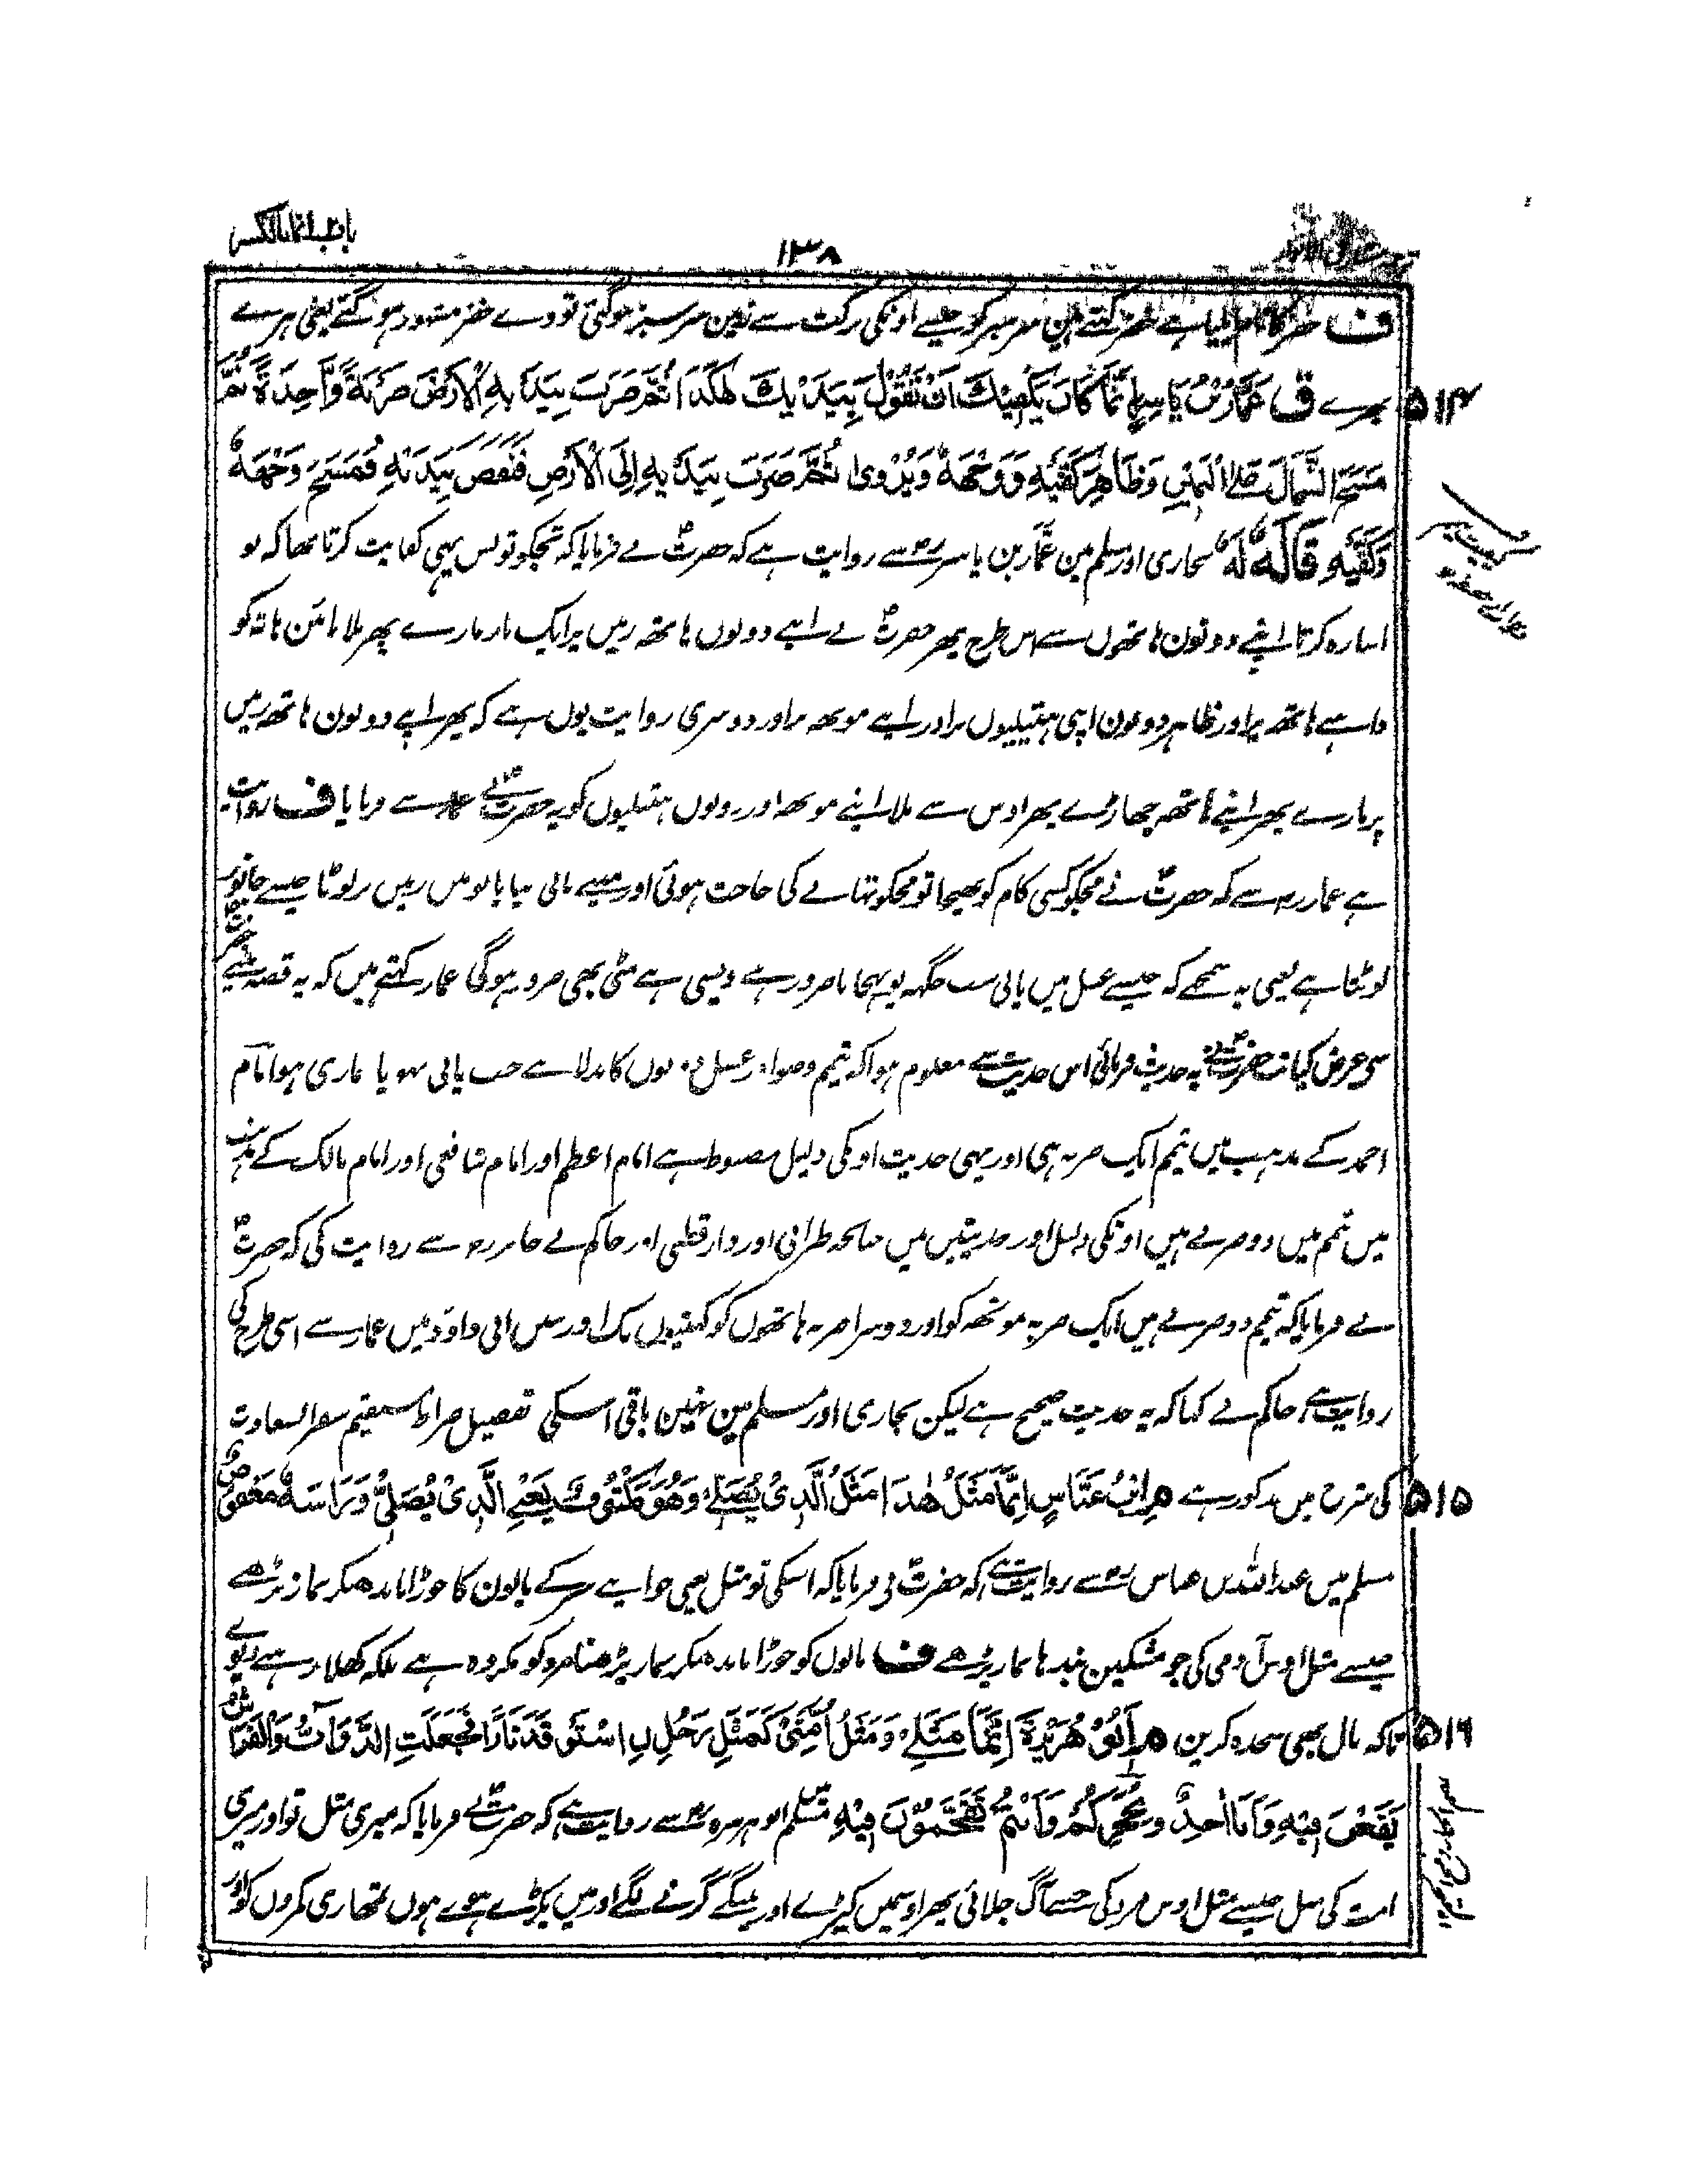 باب انما بالکسر
۱۳۸
ف خضر کا نام ایلیا ہے خضر کہتے ہین سرسبز کو جیسے اونکی برکت سے زمین سرسبز ہو گئی تو وے خضر مشہور ہو گئے یعنی ہرے
۵۱۴ بھرے ق عَمَّارُ بْنُ يَاسِرٍ اِنَّمَا كَانَ يَكْفِيْكَ اَنْ تَقُوْلَ بِيَدَيْكَ هٰكَذَا ثُمَّ ضَرَبَ بِيَدَيْهِ الْاَرْضَ ضَرْبَةً وَّاحِدَةً ثُمَّ
مَسَحَ الشِّمَالَ عَلَى الْيَمِيْنِ وَظَاهِرَ كَفَّيْهِ وَوَجْهَهٗ وَيُرْوٰى ثُمَّ ضَرَبَ بِيَدَيْهِ اِلَى الْاَرْضِ فَنَفَضَ يَدَيْهِ فَمَسَحَ وَجْهَهٗ
وَكَفَّيْهِ قَالَهٗ لَهٗ بخاری اور مسلم مین عمّار بن یاسر رض سے روایت ہے کہ حضرت نے فرمایا کہ تجکو تو بس یہی کفایت کرتا تھا کہ تو
اشارہ کرتا اپنے دونون ہاتھوں سے اس طرح پھر حضرت نے اپنے دونوں ہاتھ زمیں پر ایک بار مارے پھر ملا بائیں ہاتہ کو
داہنے ہاتھ پر اور ظاہر دونون اپنی ہتیلیوں پر اور اپنے مونھ پر اور دوسری روایت یوں ہے کہ پھر اپنے دونون ہاتھ زمیں
پر مارے پھر اپنے ہاتھ جھاڑے پھر اوس سے ملا اپنے مونھ اور دونوں ہتیلیوں کو یہ حضرت نے عمار سے فرمایا ف روایت
ہے عمار رض سے کہ حضرت نے مجکو کسی کام کو بھیجا تو مجکو نہانے کی حاجت ہوئی اور میںنے پانی نپایا تو میں زمیں پر لوٹا جیسے جانور
لوٹتا ہے یعنی یہ سمجھے کہ جیسے غسل میں پانی سب جگہہ پہنچانا ضرور ہے ویسی ہے مٹی بھی ضرور ہوگی عمار کہتے ہیں کہ یہ قصہ میںنے حضرت
سی عرض کیا تب حضرت نے یہ حدیث فرمائی اس حدیث سے معلوم ہوا کہ تیمم وضو اور غسل دونوں کا بدلا ہے جب پانی نہو یا بیماری ہو امام
احمد کے مذہب میں تیمم ایک ضربہ ہی اور یہی حدیث اونکی دلیل مضبوط ہے امام اعظم اور امام شافعی اور امام مالک کے مذہب
میں تیمم میں دو ضربے ہیں اونکی دلیل اور حدیثیں ہیں چنانچہ طبرانی اور دارقطنی اور حاکم نے جابر رض سے روایت کی کہ حضرت
نے فرمایا کہ تیمم دو ضربے ہیں ایک ضربہ مونھہ کو اور دوسرا ضربہ ہاتھوں کو کہنیوں تک اور سنن ابی داود میں عمار سے اسی طرح کی
روایت ہے حاکم نے کہا کہ یہ حدیث صحیح ہے لیکن بخاری اور مسلم مین نہین باقی اسکی تفصیل صراط مستقیم سفر السعادت
۵۱۵ کی شرح میں مذکور ہے م اِبْنُ عَبَّاسٍ اِنَّمَا مَثَلُ هٰذَا مَثَلُ الَّذِيْ يُصَلِّيْ وَهُوَ مَكْتُوْفٌ يَعْنِي الَّذِيْ يُصَلِّيْ وَرَاْسُهٗ مَعْقُوْصٌ
مسلم میں عبداللہ بن عباس رض سے روایت ہے کہ حضرت نی فرمایا کہ اسکی تو مثل یعنی جو اپنے سر کے بالون کا جوڑا باندھکر نماز پڑھے
جیسے مثل اوس آدمی کی جو مشکین بندھا نماز پڑھے ف بالوں کو جوڑا باندھکر نماز پڑھنا مرد کو مکروہ ہے بلکہ کھلا رہنے دیوے
۵۱۶ تاکہ بال بھی سجدہ کرین م اَبُوْ هُرَيْرَةَ اِنَّمَا مَثَلِيْ وَمَثَلُ اُمَّتِيْ كَمَثَلِ رَجُلِ نِ اسْتَوْقَدَ نَارًا فَجَعَلَتِ الدَّوَآبُّ وَالْفَرَاشُ
يَقَعْنَ فِيْهِ وَاَنَا اٰخِذٌ بِحُجَزِكُمْ وَاَنْتُمْ تَقَحَّمُوْنَ فِيْهِ مسلم ابو ہریرہ رض سے روایت ہے کہ حضرت نے فرمایا کہ میری مثل تو اور میری
امت کی مثل جیسے مثل اوس مرد کی جسنے آگ جلائی پھر اوسمیں کیڑے اور پتنگے گرنے لگے اور میں پکڑے ہوے ہوں تمھاری کمروں کو اور